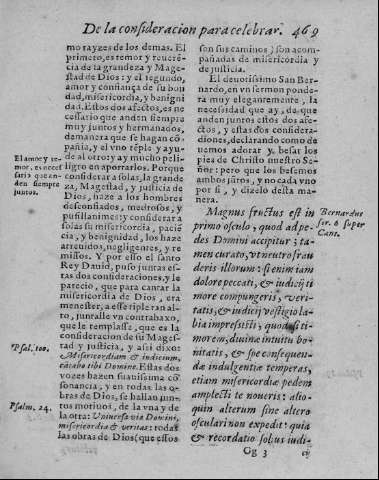 De la consideracion para celebrar. 469
mo rayzes de los demas. El
primero, es temor y reuerẽ-
cia de la grandeza y Mages-
stad de Dios: y el segundo,
amor y confiança de su bon
dad, misericordia, y benigni
dad. Estos dos afectos, es ne
cessario que anden siempre
muy juntos y hermanados,
demanera que se hagan cõ-
pañia, y el vno rẽple y ayu-
de al otro: ay mucho peli-
ligro en apartarlos. Porque
considerar a solas, la grande
za, Magestad, y justicia de
Dios, haze a los hombres
desconfiados, medrosos, y
pusillanimes: y considerar a
solas su misericordia, pacié
cia, y benignidad, los haze
atreuidos, negligentes, y re
missos. Y por esso el santo
Rey Dauid, puso juntas es-
tas dos consideraciones, y le
parecio, que para cantar la
misericordia de Dios, era
menester, a esse tiple ran al-
to, junralle vn contrabaxo,
que le templasse, que es la
consideracion de su Mages-
tad y justicia, y assi dixo:
Misericordiam & iudicium,
cãtabo tibi Domine. Estas dos
vozes hazen suauissima cõ
sonancia, y en todas las o-
bras de Dios, se hallan jun-
tos motiuos, de la vna y de
la otra: Vniuersa via Domini,
misericordia & veritas: todas
las obras de Dios (que essos
El amor y te-
mor, es neces
sario que an-
den siempre
juntos.
Psal. 100.
Psalm. 24.
son sus caminos) son acom-
pañadas de misericordia y
de justicia.
El deuotissimo San Ber-
nardo, en vn sermon ponde
ra muy elegantemente, la
necessidad que ay, de que
anden juntos estos dos afe-
ctos, y estas dos considera-
diones, declarando como de
uemos adorar y, besar los
pies de Christo nuestro Se-
ñor: pero que los besemos
ambos juros, y no cada vno
por si, y dizelo desta ma-
nera.
Magnus fructus est in
primo osculo, quod ad pe-
des Domini accipitur; ta-
men curato, vt neutro frau
deris illorum: si enim iam
dolore peccati, & iudicij ti
more compungeris, veri-
tatis, & iudicij vestigio la-
bia impressisti, quod si ti-
morem, diuinæ intuitu bo-
nitatis, & spe consequen-
dæ indulgentiæ temperas,
etiam misericordiæ pedem
amplecti te noueris: alio-
quin alterum sine altero
osculari non expedit: quia
& recordatio solius iudi-
Bernardus
ser. 6 super
Cant.
Gg 3 cij